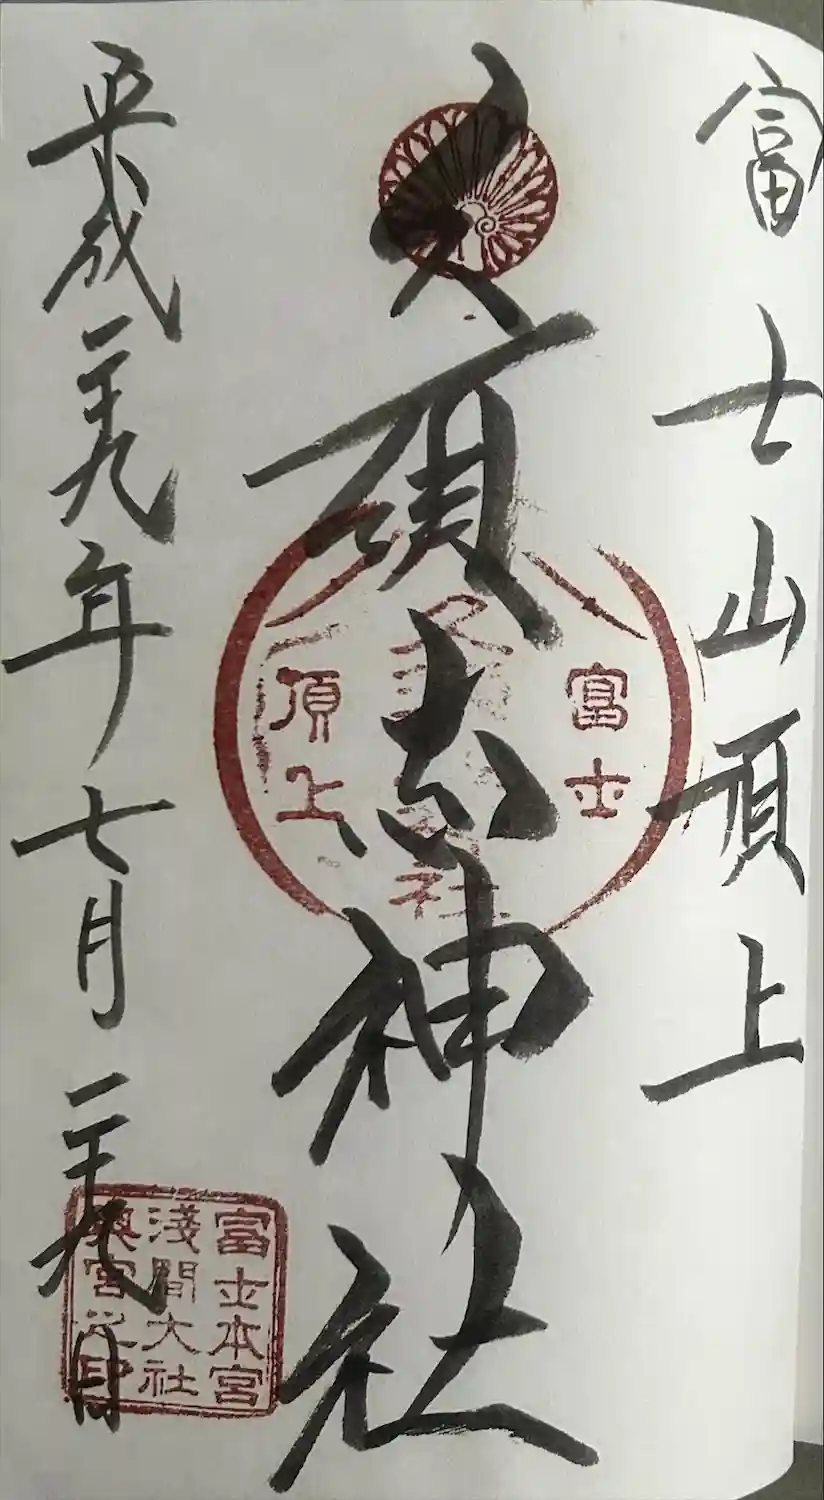 富士山頂上
久須志神社
富士
頂上
平成二十九年七月二十九日
富士本宮
淺間大社
奥宮之印